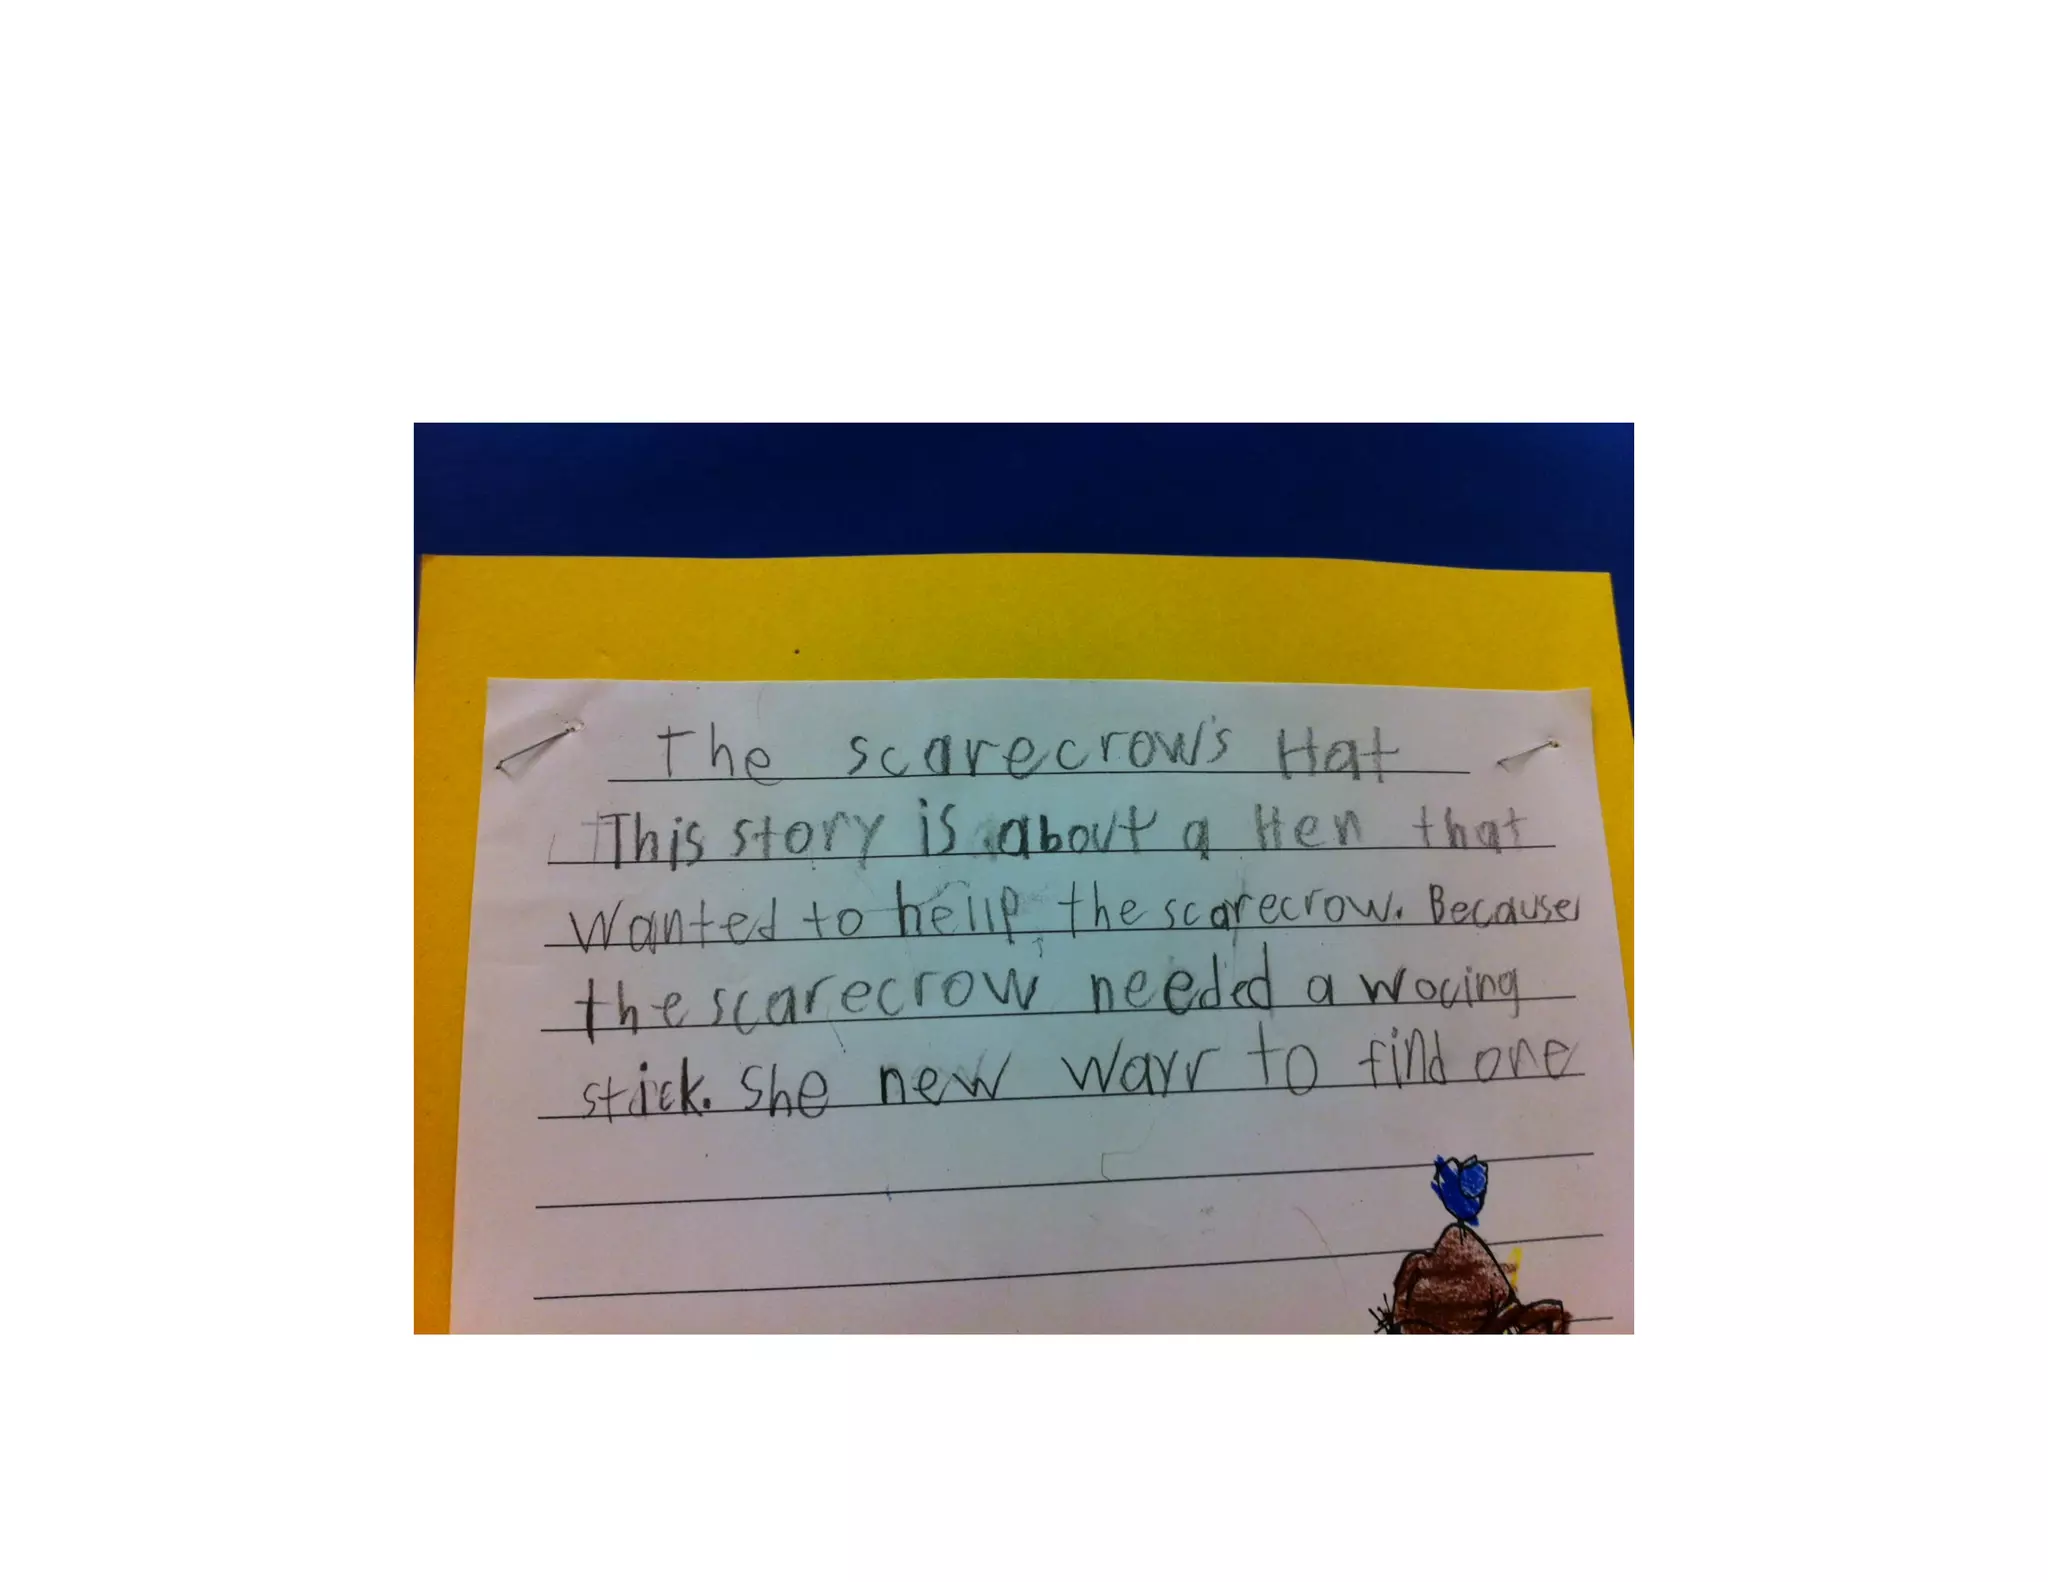 The scarecrow's Hat
This story is about a Hen that
wanted to hellp the scarecrow. Because
the scarecrow needed a wocing
stick. She new warr to find one